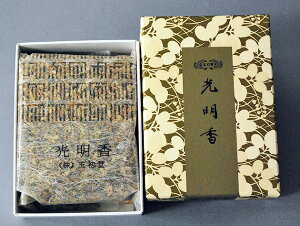 光明香
(株)玉初堂
光明香